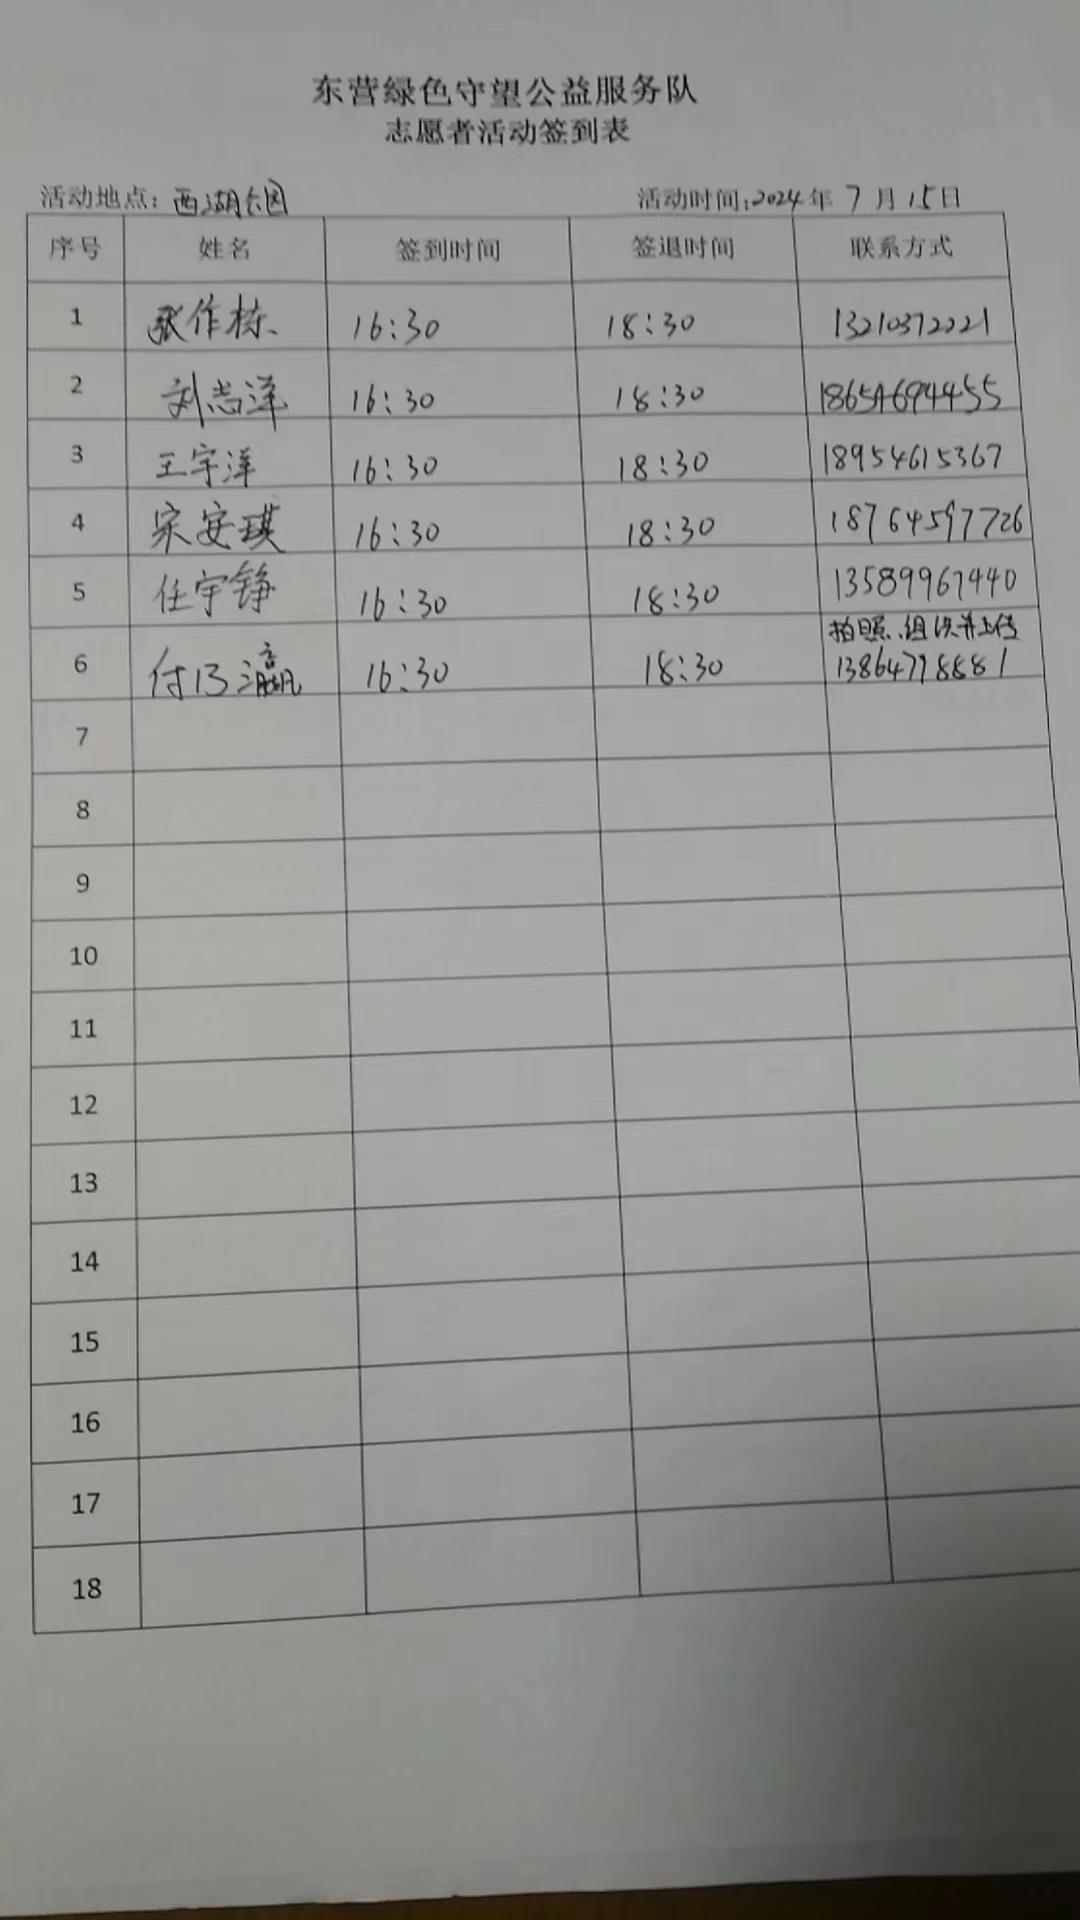 东营绿色守望公益服务队
志愿者活动签到表
活动地点：西湖公园 活动时间：2024年7月15日
序号 姓名 签到时间 签退时间 联系方式
1 张作栋 16:30 18:30 13210372221
2 刘志洋 16:30 18:30 18654694455
3 王宇洋 16:30 18:30 18954615367
4 宋安琪 16:30 18:30 18764597726
5 任宇铮 16:30 18:30 13589967440
拍照、组织并上传
6 付 瀛 16:30 18:30 13864778881
7
8
9
10
11
12
13
14
15
16
17
18